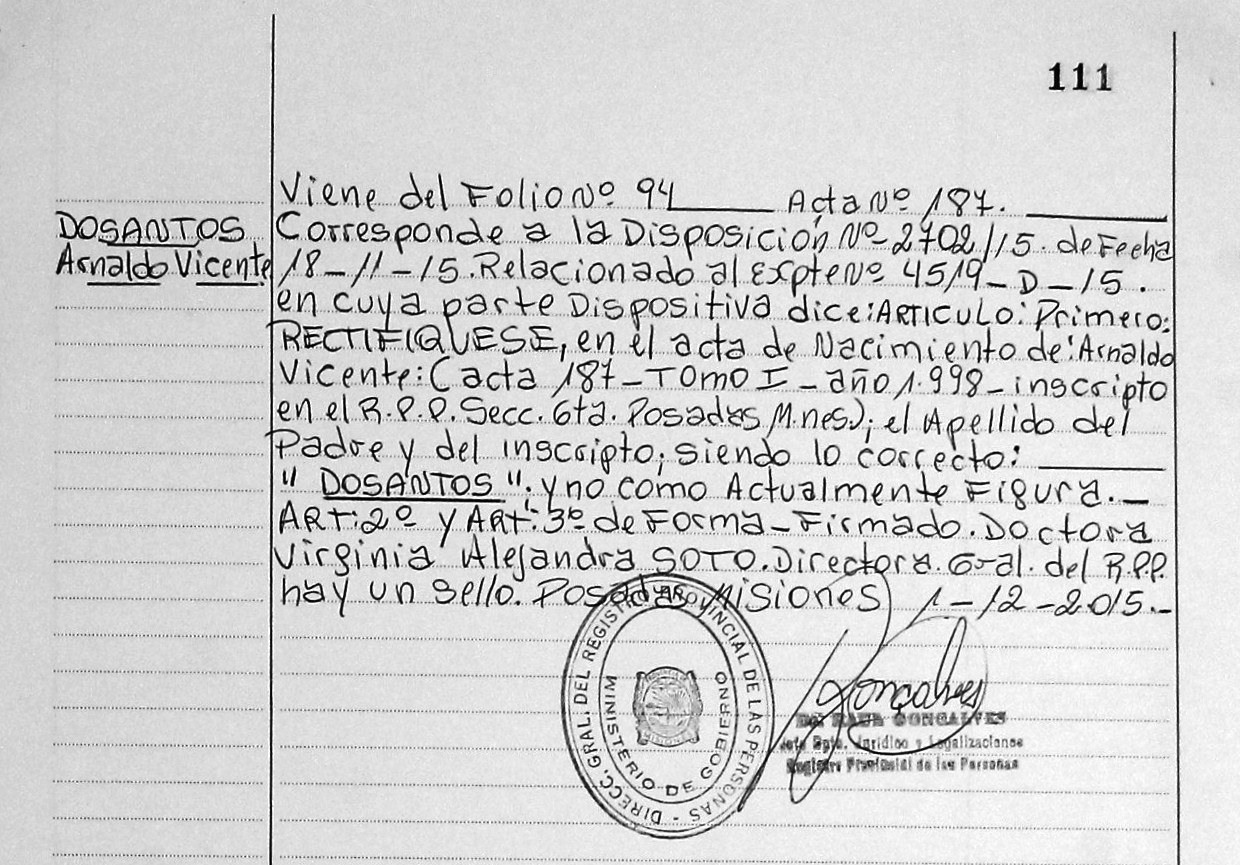 111
Viene del Folio Nº 94 ____ Acta Nº 187. ____
DOSANTOS
Arnaldo Vicente
Corresponde a la Disposición Nº 2702/15. de Fecha
18-11-15. Relacionado al Expte Nº 4519-D-15.
en cuya parte Dispositiva dice: ARTICULO: Primero:
RECTIFIQUESE, en el acta de Nacimiento de: Arnaldo
Vicente: (acta 187-TOMO I-año 1.998-inscripto
en el R.P.P. Secc. 6ta. Posadas M.nes); el Apellido del
Padre y del inscripto; siendo lo correcto: ____
" DOSANTOS ". y no como Actualmente Figura._
ART: 2º y Art: 3º de Forma-Firmado. Doctora
Virginia Alejandra SOTO. Directora. Gral. del R.P.P.
hay un sello. Posadas, Misiones 1-12-2015.-
DIRECC. GRAL. DEL REGISTRO PROVINCIAL DE LAS PERSONAS -
MINISTERIO DE GOBIERNO
Gonçalves
RAUL GONCALVES
Jefe Dpto. Jurídico y Legalizaciones
Registro Provincial de las Personas